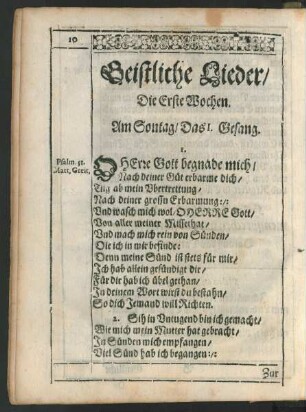 10
Geistliche Lieder/
Die Erste Wochen.
Am Sontag/ Das I. Gesang.
1.
Psalm. 51.
Matt. Greit.
O HErre Gott begnade mich/
Nach deiner Güt erbarme dich/
Tilg ab mein Vbertrettung/
Nach deiner grossn Erbarmung:/:
Vnd wasch mich wol/ O HERRE Gott/
Von aller meiner Missethat/
Vnd mach mich rein von Sünden/
Die ich in mir befinde:
Denn meine Sünd ist stets für mir/
Ich hab allein gesündigt dir/
Für dir hab ich übel gethan/
In deinem Wort wirst du bestahn/
So dich Jemand will Richten.
2. Sih in Vntugend bin ich gemacht/
Wie mich mein Mutter hat gebracht/
In Sünden mich empfangen/
Viel Sünd hab ich begangen:/:
Zur